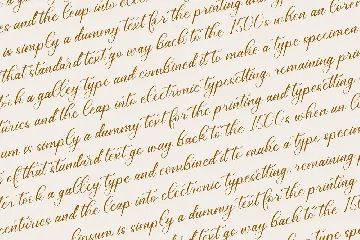 es and the leap into
is simply a dummy text for the printing and typ
that standard text go way back to the 1500's when an lore
took a galley type and combined it to make a type specimen
turies and the leap into electronic typesetting, remaining pr
sum is simply a dummy text for the printing and typesetting.
s of that standard text go way back to the 1500's when an l
er took a galley type and combined it to make a type speci
centuries and the leap into electronic typesetting, remaining
Ipsum is simply a dummy text for the printing
standard text go way back to the 1500's